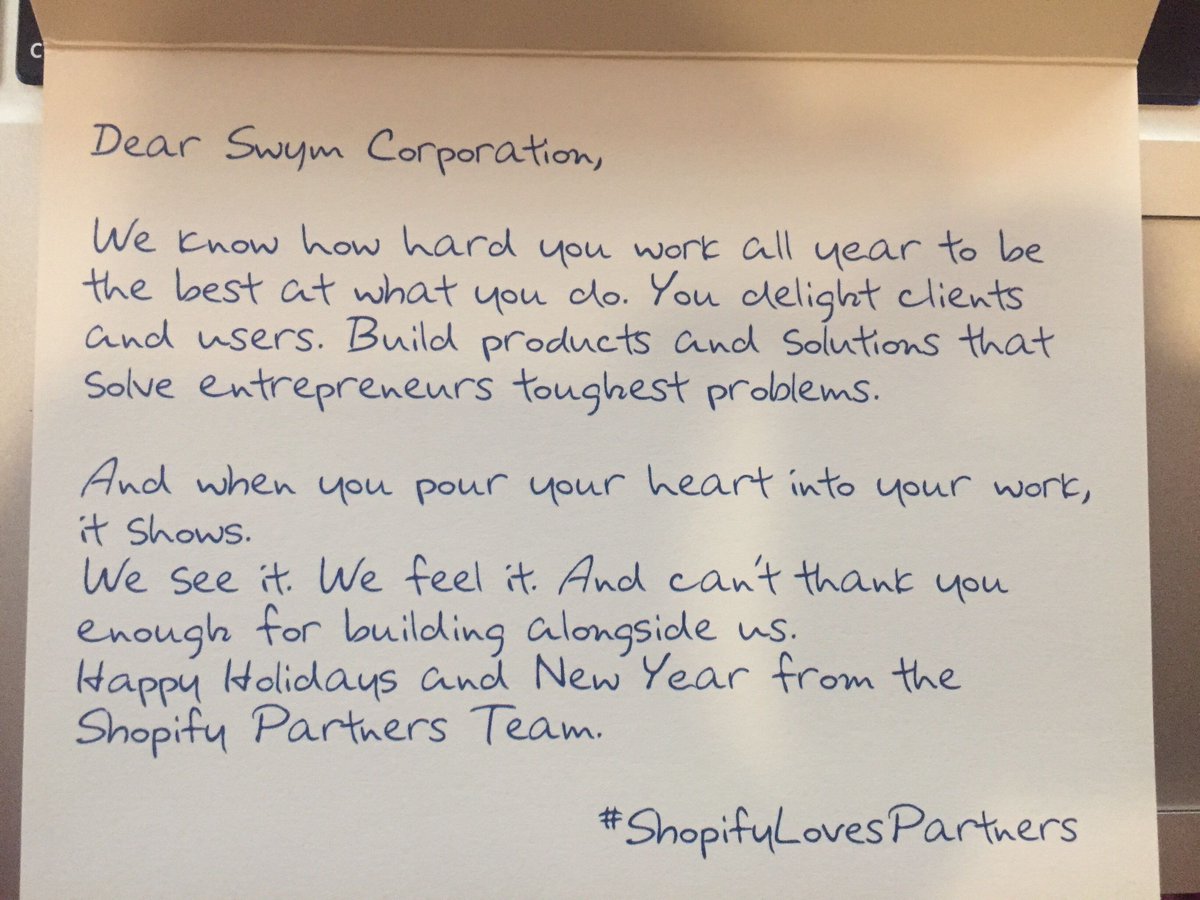 C
Dear Swym Corporation,
We know how hard you work all year to be
the best at what you do. You delight clients
and users. Build products and solutions that
solve entrepreneurs toughest problems.
And when you pour your heart into your work,
it shows.
We see it. We feel it. And can't thank you
enough for building alongside us.
Happy Holidays and New Year from the
Shopify Partners Team.
#ShopifyLovesPartners